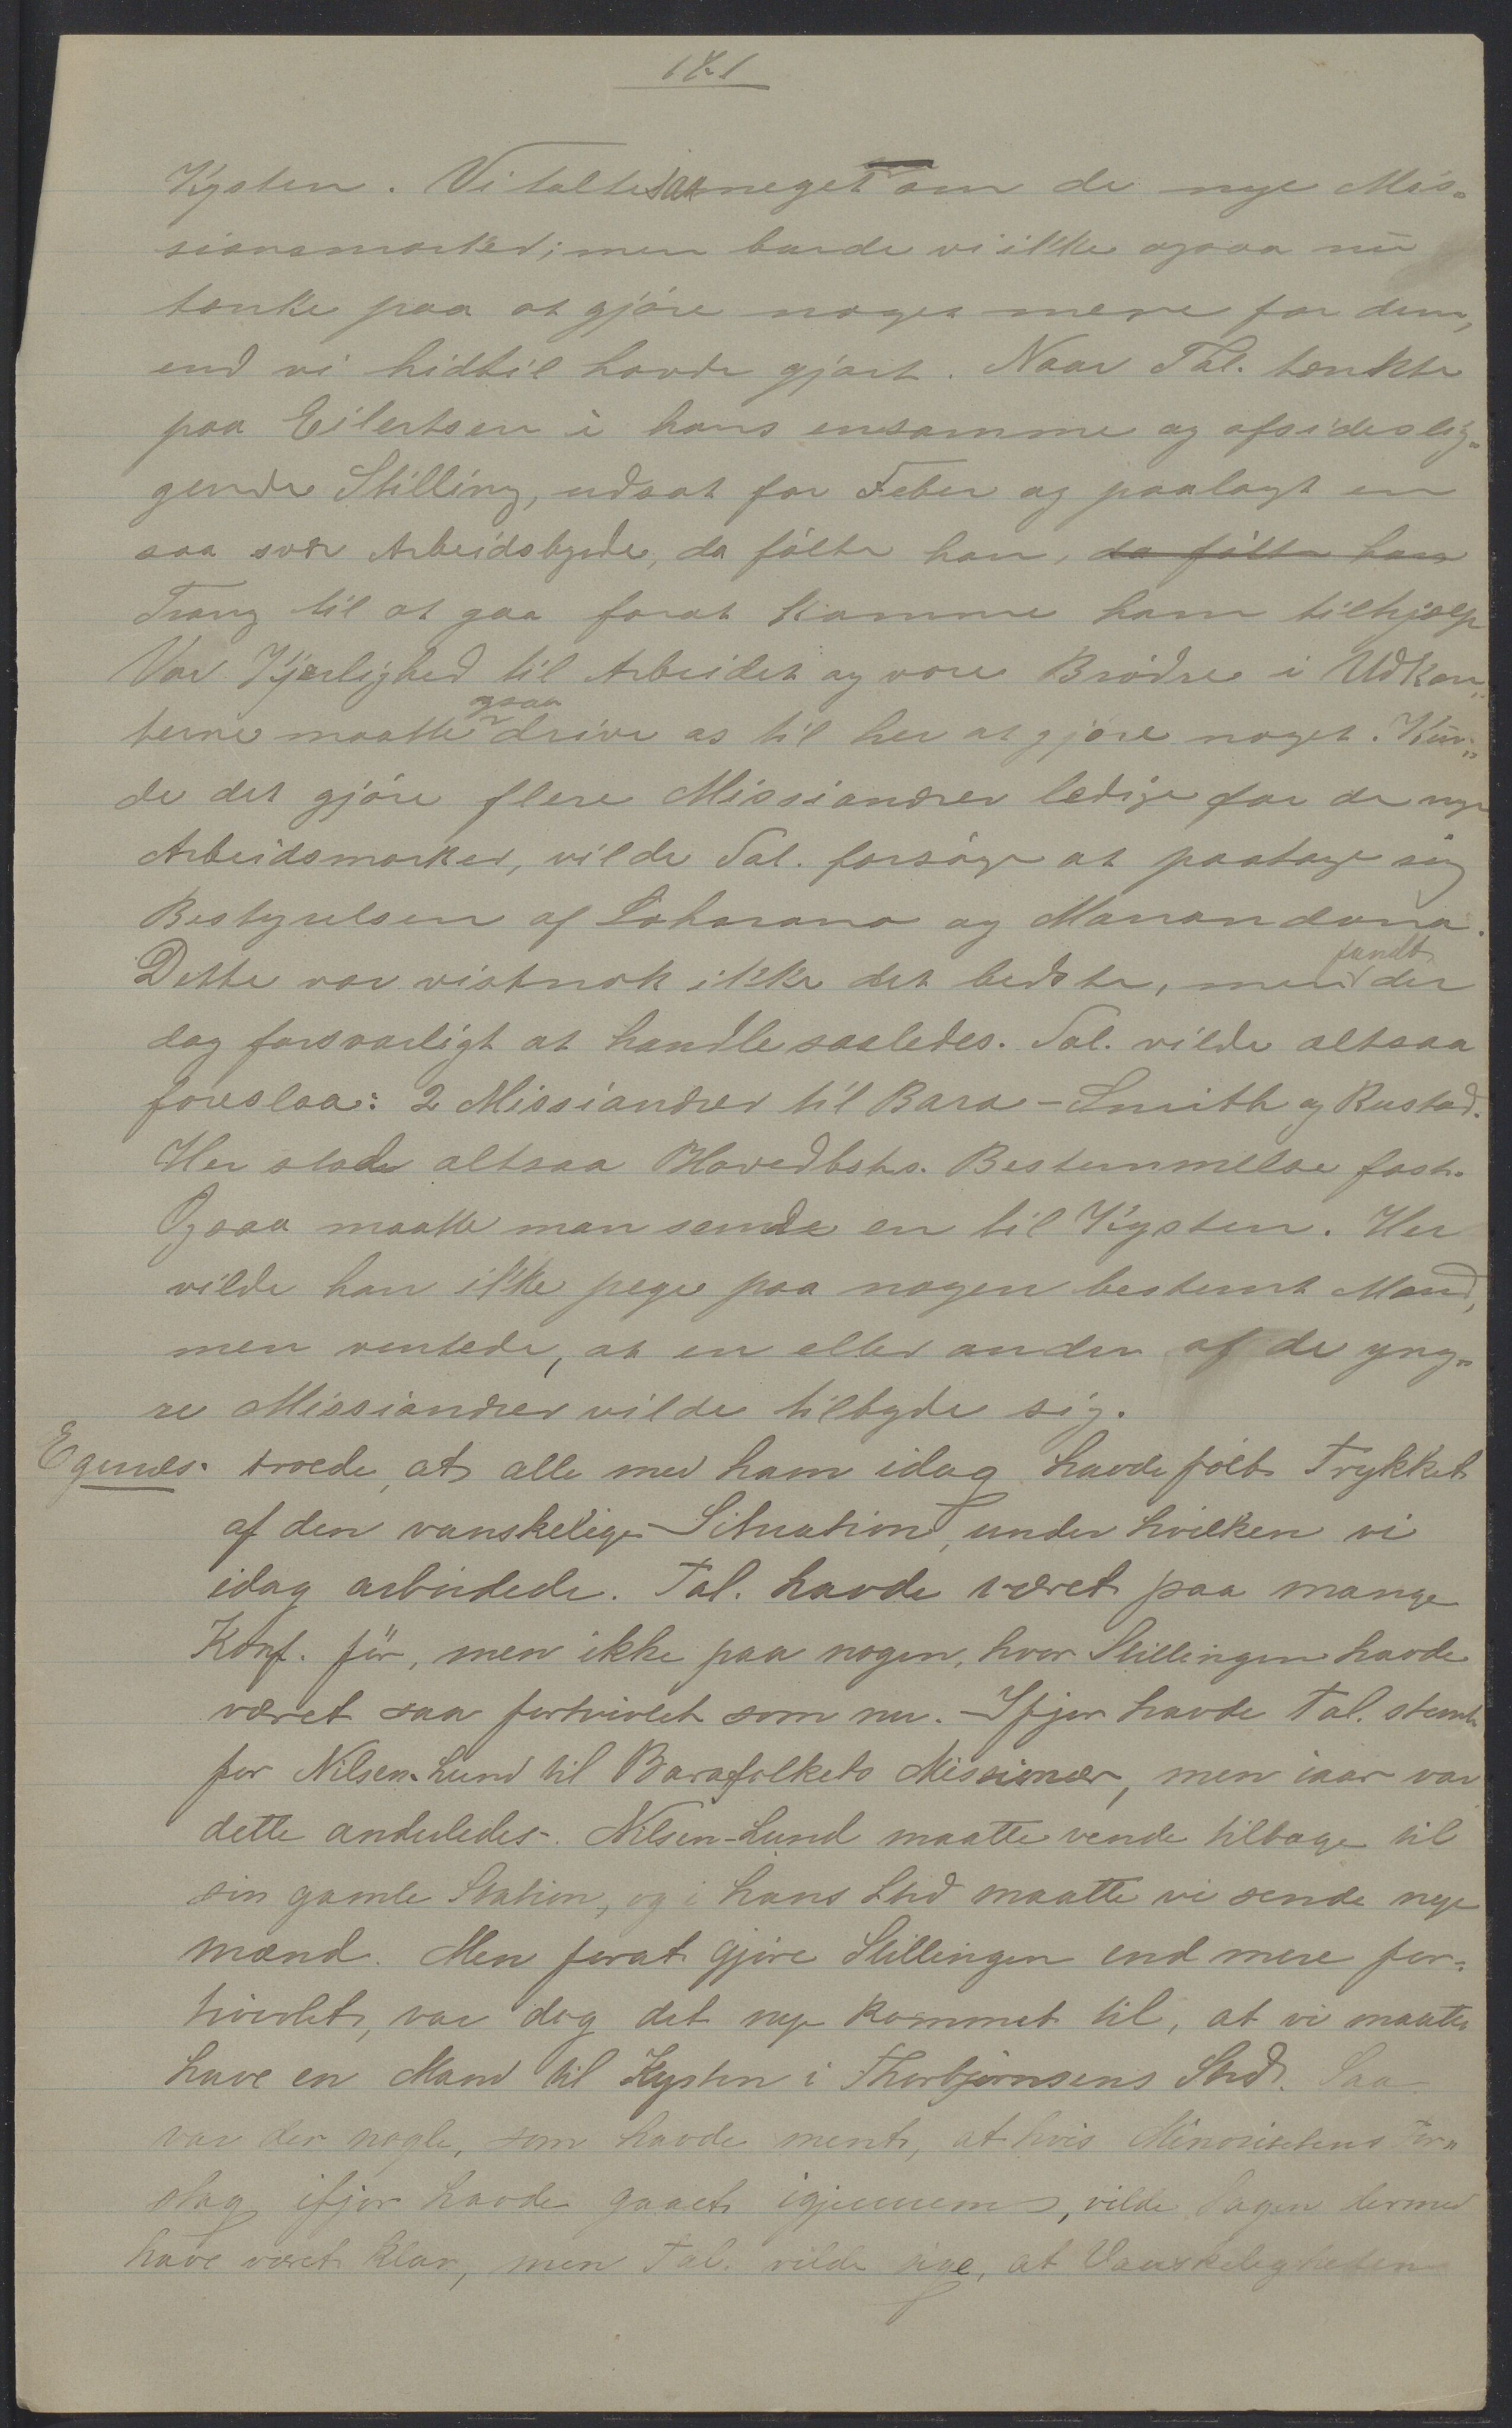 Kysten. Vi talte saa meget om de nye Mis-
sionsmarker; men burde vi ikke ogsaa nu
tænke paa at gjöre noget mere for dem,
end vi hidtil havde gjort. Naar Tal. tænkte
paa Eilertsen i hans ensomme og afsideslig-
gende Stilling, udsat for Feber og paalagt en
saa svær Arbeidsbyrde, da fölte han, da fölte han
Trang til at gaa forat komme ham tilhjælp
Vor Kjærlighed til Arbeidet og vore Brödre i Udkan-
terne maatte ogsaa drive os til her at gjöre noget. Kun-
de det gjöre flere Missionærer ledige for de nye
Arbeidsmarker, vilde Tal. forsöge at paatage sig
Bestyrelsen af Loharano og Manandona.
Dette var vistnok ikke det bedste, men fandt det
dog forsvarligt at handle saaledes. Tal. vilde altsaa
foreslaa: 2 Missionærer til Bara - Smith og Rustad.
Her stode altsaa Hovedbsts. Bestemmelse fast.
Ogsaa maatte man sende en til Kysten. Her
vilde han ikke pege paa nogen bestemt Mand,
men ventede, at en eller anden af de yng-
re Missionærer vilde tilbyde sig.
Egenæs. troede, at alle med ham idag havde fölt Trykket
af den vanskelige Situation, under hvilken vi
idag arbeidede. Tal. havde været paa mange
Konf. för, men ikke paa nogen, hvor Stillingen havde
været saa fortvivlet som nu. Ifjor havde Tal. stemt
for Nilsen-Lund til Barafolkets Missionær, men iaar var
dette anderledes. Nilsen-Lund maatte vende tilbage til
sin gamle Station, og i hans Sted maatte vi sende nye
Mænd. Men forat gjöre Stillingen end mere for-
tvivlet, var dog det nye kommet til, at vi maatte
have en Mand til Kysten i Thorbjörnsens Sted. Saa
var der nogle, som havde ment, at hvis Minoritetens For-
slag ifjor havde gaaet igjennem, vilde Sagen dermed
have været klar, men Tal. vilde sige, at Vanskeligheden